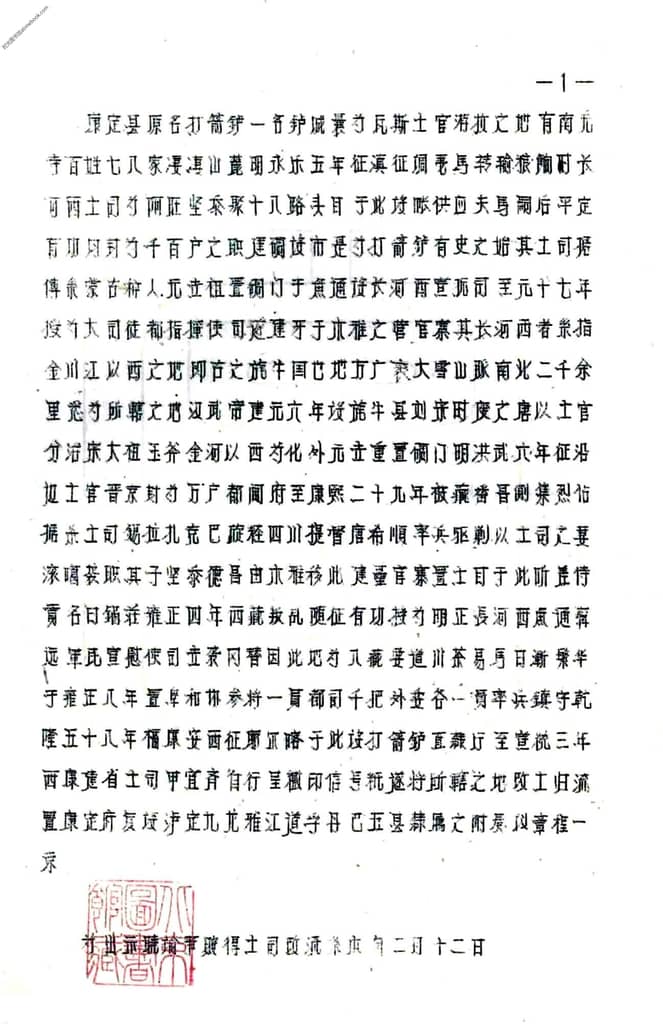 —1—
康定县原名打箭鈩一名鈩城曩为瓦斯土官游牧之地有南无
寺百姓七八家凄凄山麓明永乐五年征滇征 馬转输粮餉时长
河西土司 十八路头目于此 供应夫馬嗣后平定
有功均封为千百户之职建碉设市是为打箭鈩有史之始其土司据
傳系蒙古种人元世祖置碉门于魚通设长河西宣抚司至元十七年
授为大司徒都指揮使司建牙于木雅之营官寨其长河西者系指
金川江以西之地即古之旄牛国也地方广袤大雪山脉南北二千余
里悉为所轄之地汉武帝建元六年设旄牛县刘宋时废之唐以土官
分治宋太祖玉斧金河以西为化外元世重置碉门明洪武六年征沿
边土官晋京封为万户都阃府至康熙二十九年被藏番昌侧集烈佔
据杀土司锡拉扎克巴 四川提督唐希順率兵征剿以土司之妻
袭职其子坚参德昌由木雅移此建营官寨置土目于此听差侍
貢名曰锅莊雍正四年西藏叛乱随征有功授为明正長河西魚通寧
远軍民宣慰使司世袭冈替因此地为入藏要道川茶易馬日漸繁华
于雍正八年置阜和协参将一員都司千把外委各一員率兵鎮守乾
隆五十八年福康安西征廓尔喀于此设打箭鈩直隸厅至宣統三年
西康建省土司甲宜斉自行呈缴印信号紙遂将所轄之地改土归流
置康定府复域泸定九龙雅江道孚丹巴五县隸属之附奏似章程一
录
北京圖書館藏
土司改流 二月十二日